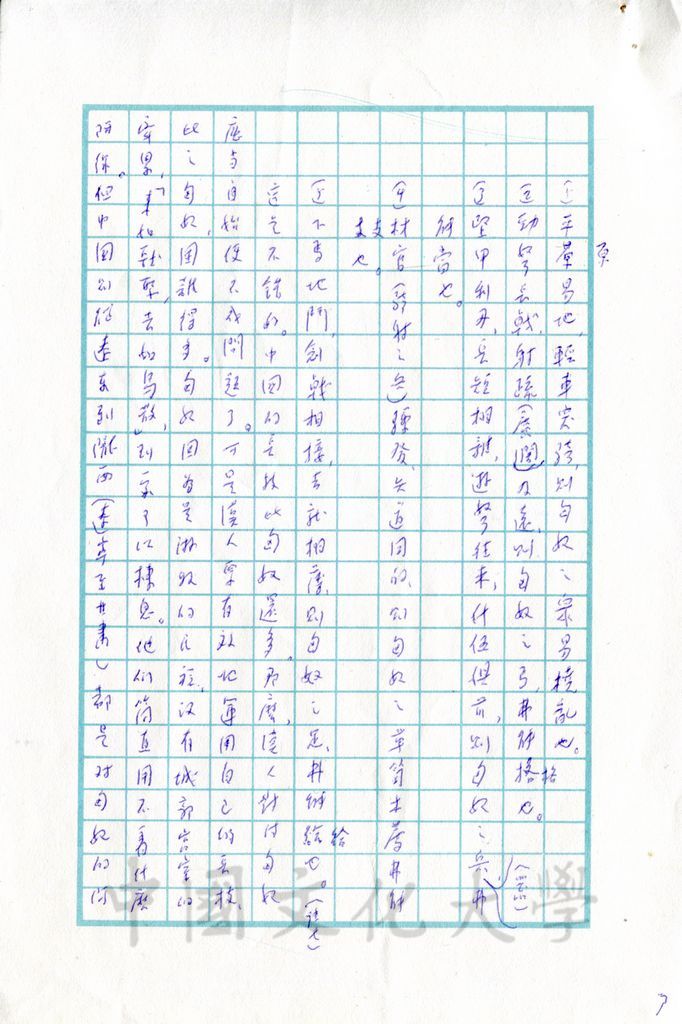 平原易地,輕車突騎,則匈奴之眾易撓亂也。
勁弩長戟,射疏(廣闊)及遠,則匈奴之弓,弗能格也。
堅甲利刃,長短相雜,遊弩往來,什伍俱前,則匈奴之兵,弗
能當也。
材官(射之官)發,矢道同的,則匈奴之革笥木薦弗能
支也。
下馬地鬥,劍戟相接,去就相薄,則匈奴之足,弗能給也。
這是不錯的。中國的長技比匈奴還多。那麼,漢人對付匈奴
應當自始便不成問題了。可是漢人要有效地運用自己的長技,
比之匈奴,困難得多。匈奴因為是游牧的民族,沒有城郭宮室的
牽累,「來如獸聚,去如鳥散」,到處可以棲息。他們簡直用不著什麼
防保。但中國則從遼東到隴西(遼寧至甘肅)都是對匈奴的防
中國文化大學
7